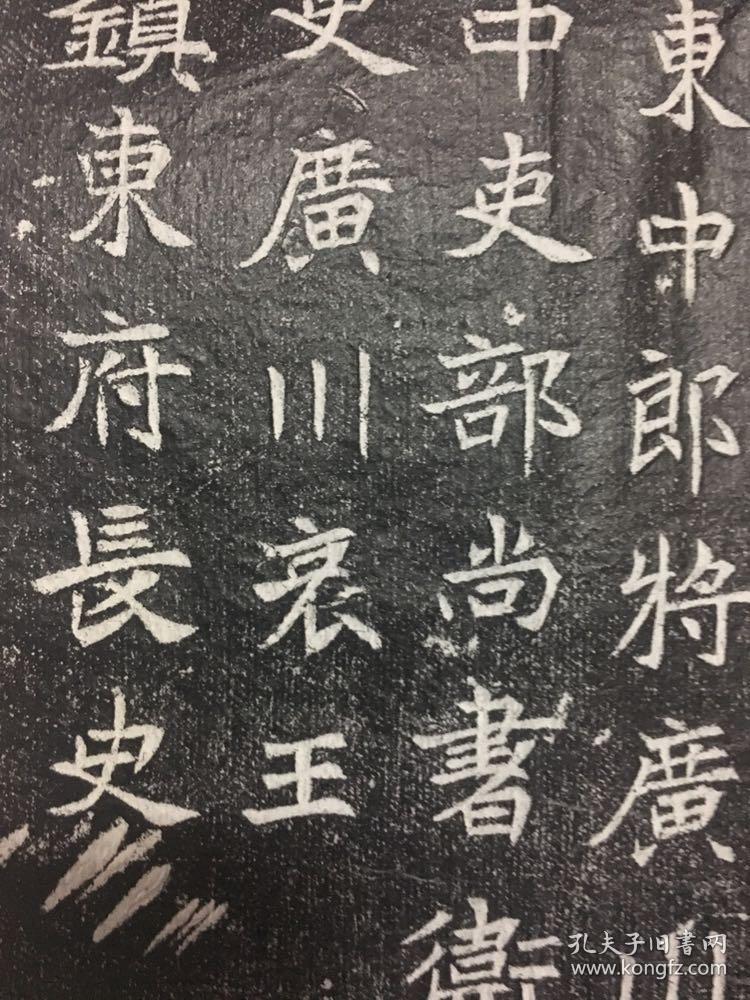 東中郎将廣川
中吏部尚書衛
史廣川哀王
鎮東府長史
孔夫子旧書网
www.kongfz.com